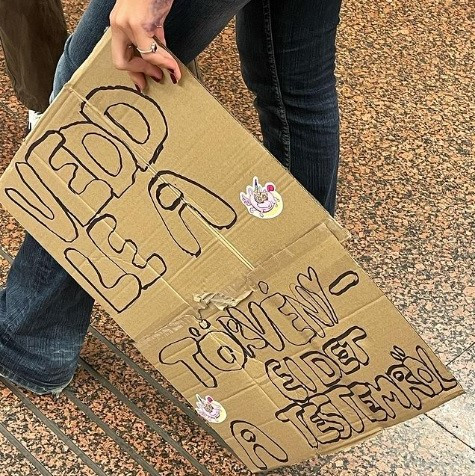 VEDD
LE A
TÖRVÉNY-
EIDET
A TESTEMRŐL